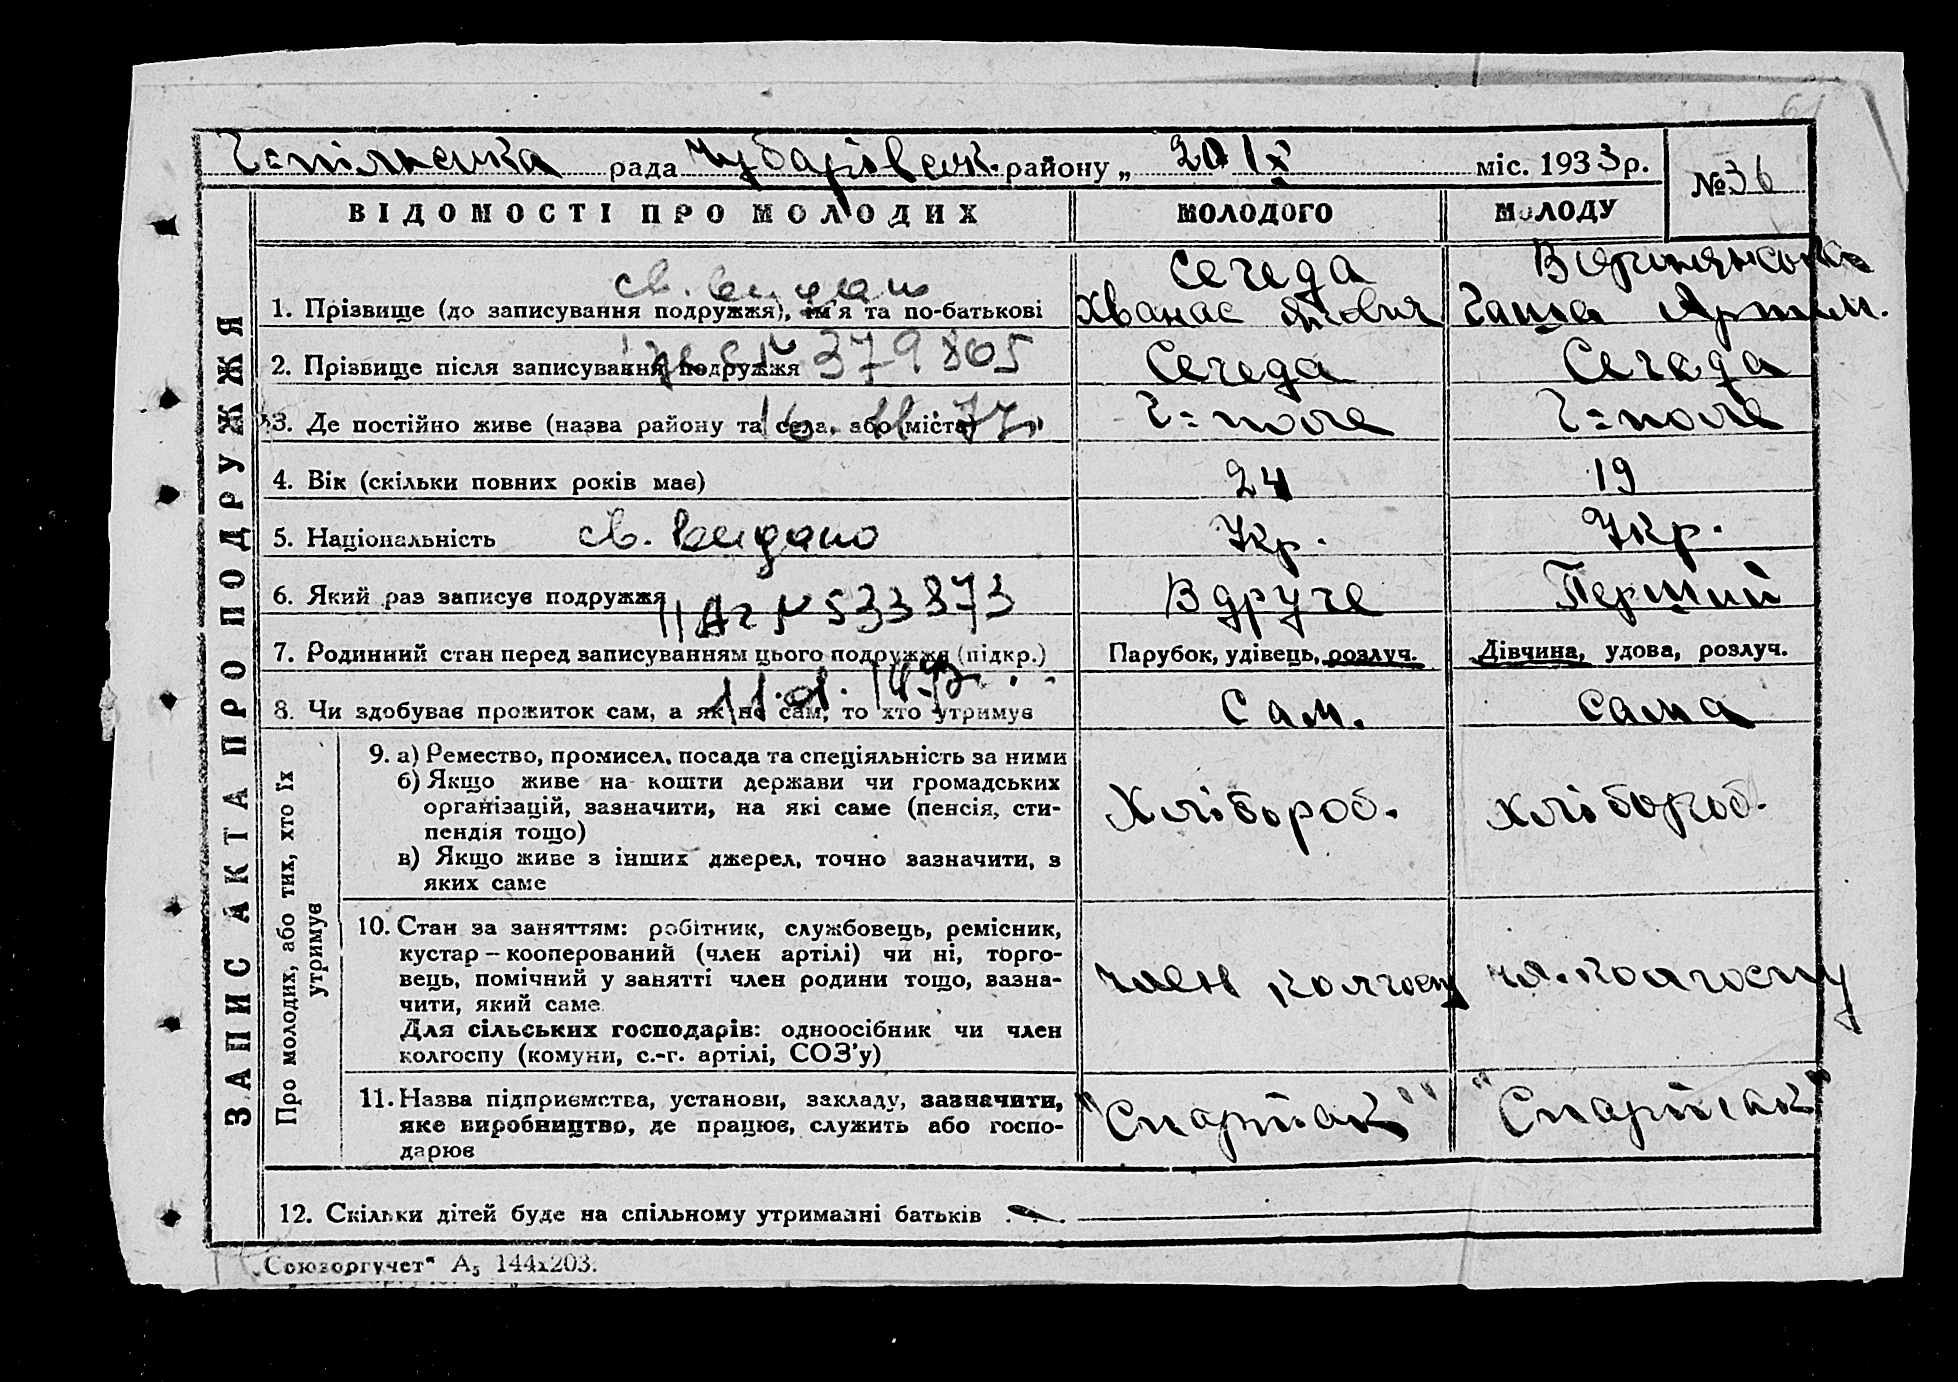 Г=пільська рада Чубарівськ. району „ 20 IX міс. 1933 р. №36
ЗАПИС АКТА ПРО ПОДРУЖЖЯ
ВІДОМОСТІ ПРО МОЛОДИХ МОЛОДОГО МОЛОДУ
св. видано Середа
1. Прізвище (до записування подружжя), ім'я та по-батькові Хванас Ганна Артем.
2. Прізвище після записування подружжя № 379805 Середа Середа
3. Де постійно живе (назва району та села, або міста) Г=поле Г=поле
4. Вік (скільки повних років має) 24 19
5. Національність св. видано Укр. Укр.
6. Який раз записує подружжя II № 533873 Вдруге Перший
7. Родинний стан перед записуванням цього подружжя (підкр.) Парубок, удівець, розлуч. Дівчина, удова, розлуч.
8. Чи здобував прожиток сам, а як не сам, то хто утримує Сам. Сама
Про молодих, або тих, хто їх утримує
9. а) Ремество, промисел, посада та спеціяльність за ними
б) Якщо живе на кошти держави чи громадських
організацій, зазначити, на які саме (пенсія, сти-
пендія тощо) Хлібороб. Хлібороб.
в) Якщо живе з інших джерел, точно зазначити, з
яких саме
10. Стан за заняттям: робітник, службовець, ремісник,
кустар – кооперований (член артілі) чи ні, торго-
вець, помічний у занятті член родини тощо, зазна-
чити, який саме член колгоспу чл. колгоспу
Для сільських господарів: одноосібник чи член
колгоспу (комуни, с.-г. артілі, СОЗ'у)
11. Назва підприємства, установи, закладу, зазначити,
яке виробництво, де працює, служить або госпо-
дарює "Спартак" "Спартак"
12. Скільки дітей буде на спільному утриманні батьків
„Союзоргучет" А5 144х203.